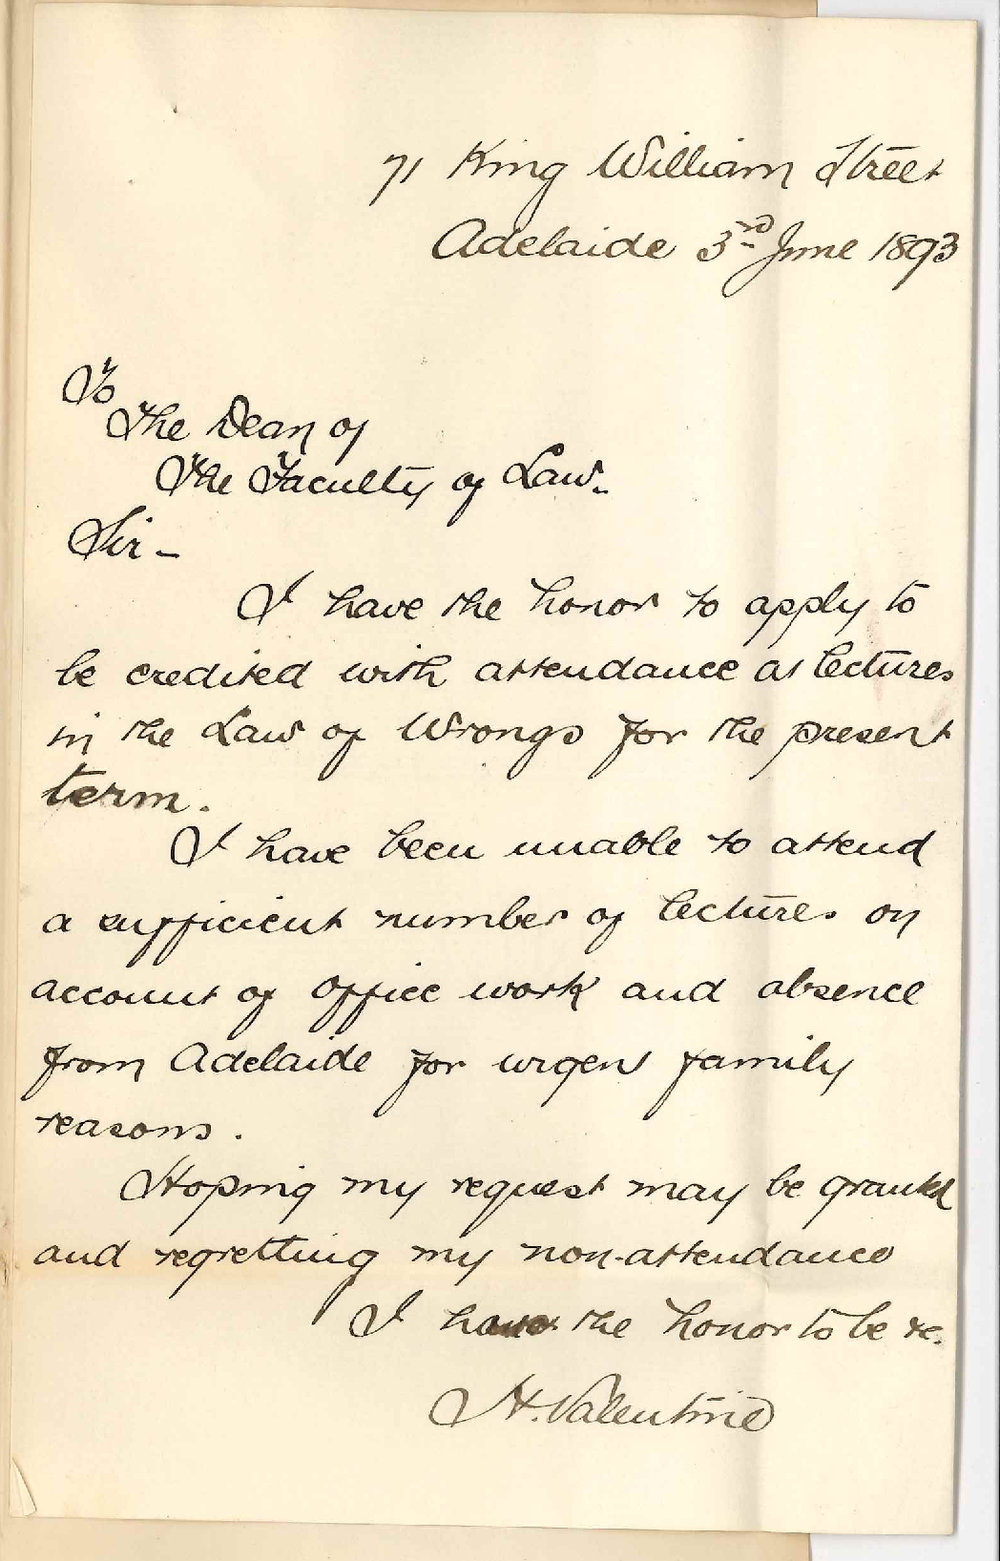 71 King William Street
Adelaide 3rd June 1893
To
The Dean of
The Faculty of Law.
Sir -
I have the honor to apply to
be credited with attendance at lectures
in the Law of Wrongs for the present
term.
I have been unable to attend
a sufficient number of lectures on
account of office work and absence
from Adelaide for urgent family
reasons.
Hoping my request may be granted
and regretting my non-attendance
I have the honor to be &c.
H. Valentine